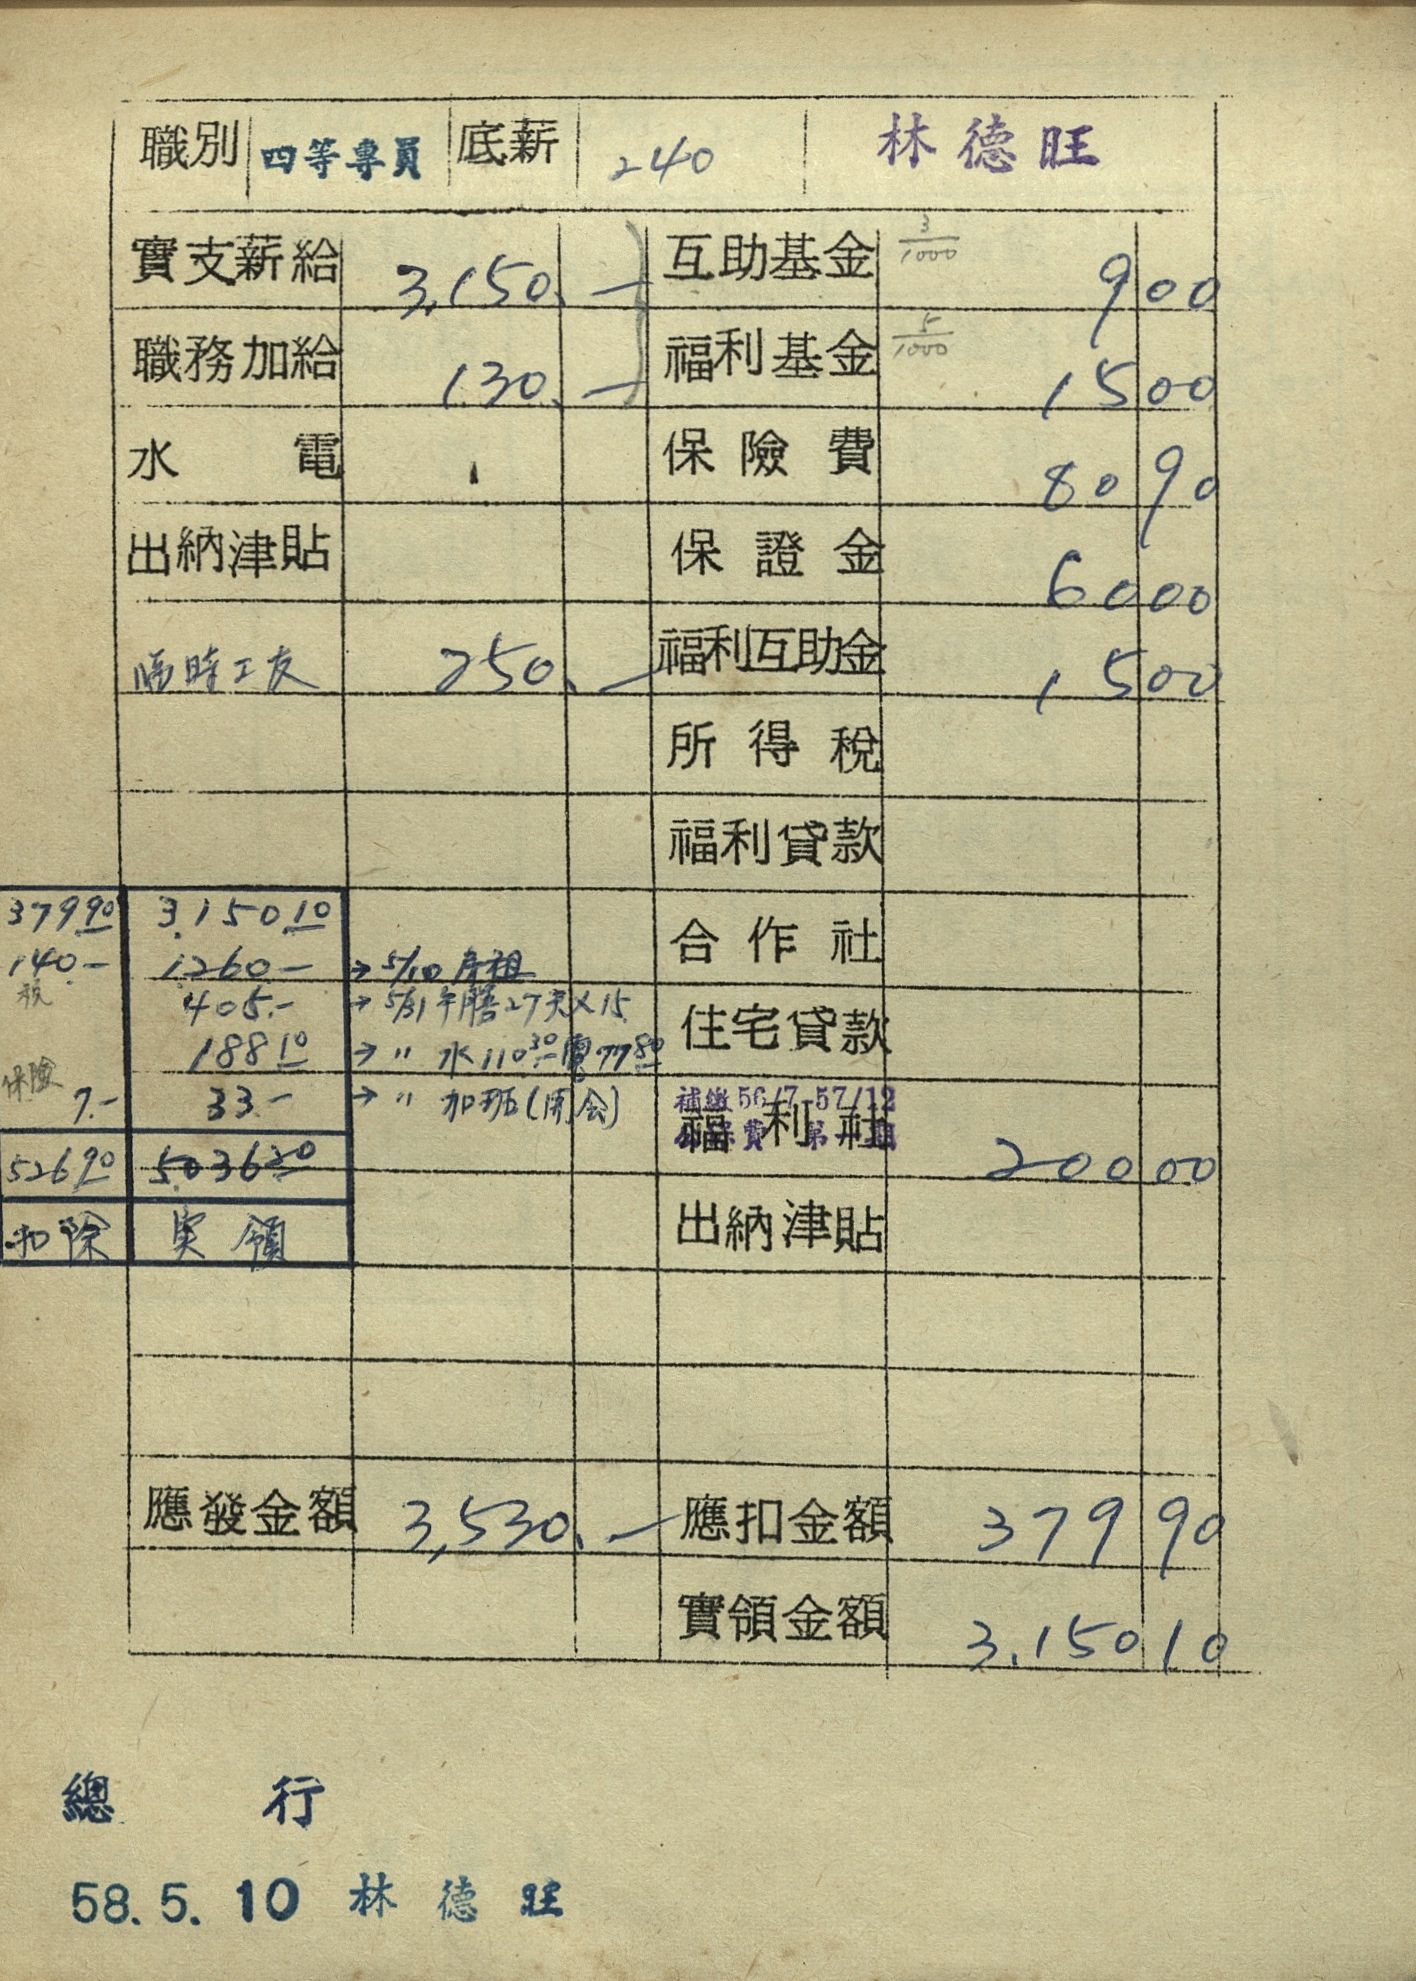 職別 四等專員 底薪 240 林德旺
實支薪給 3,150.— 互助基金 3/1000 9 00
職務加給 130.— 福利基金 5/1000 15 00
水電 保險費 80 90
出納津貼 保證金 60 00
臨時工友 250.— 福利互助金 15 00
所得稅
福利貸款
379 90 3,150 10 合作社
140.— 1,260— → 5/10 房租
稅 405.— → 5/31 午膳27天×15 住宅貸款
188 10 → 〃 水110 30 電77 80
保險 7.— 33.— → 〃 加班(開會) 補繳56/7-57/12
福利社 200 00
526 90 5,036 20
扣除 実領 出納津貼
應發金額 3,530.— 應扣金額 379 90
實領金額 3,150 10
總行
58.5.10 林德旺